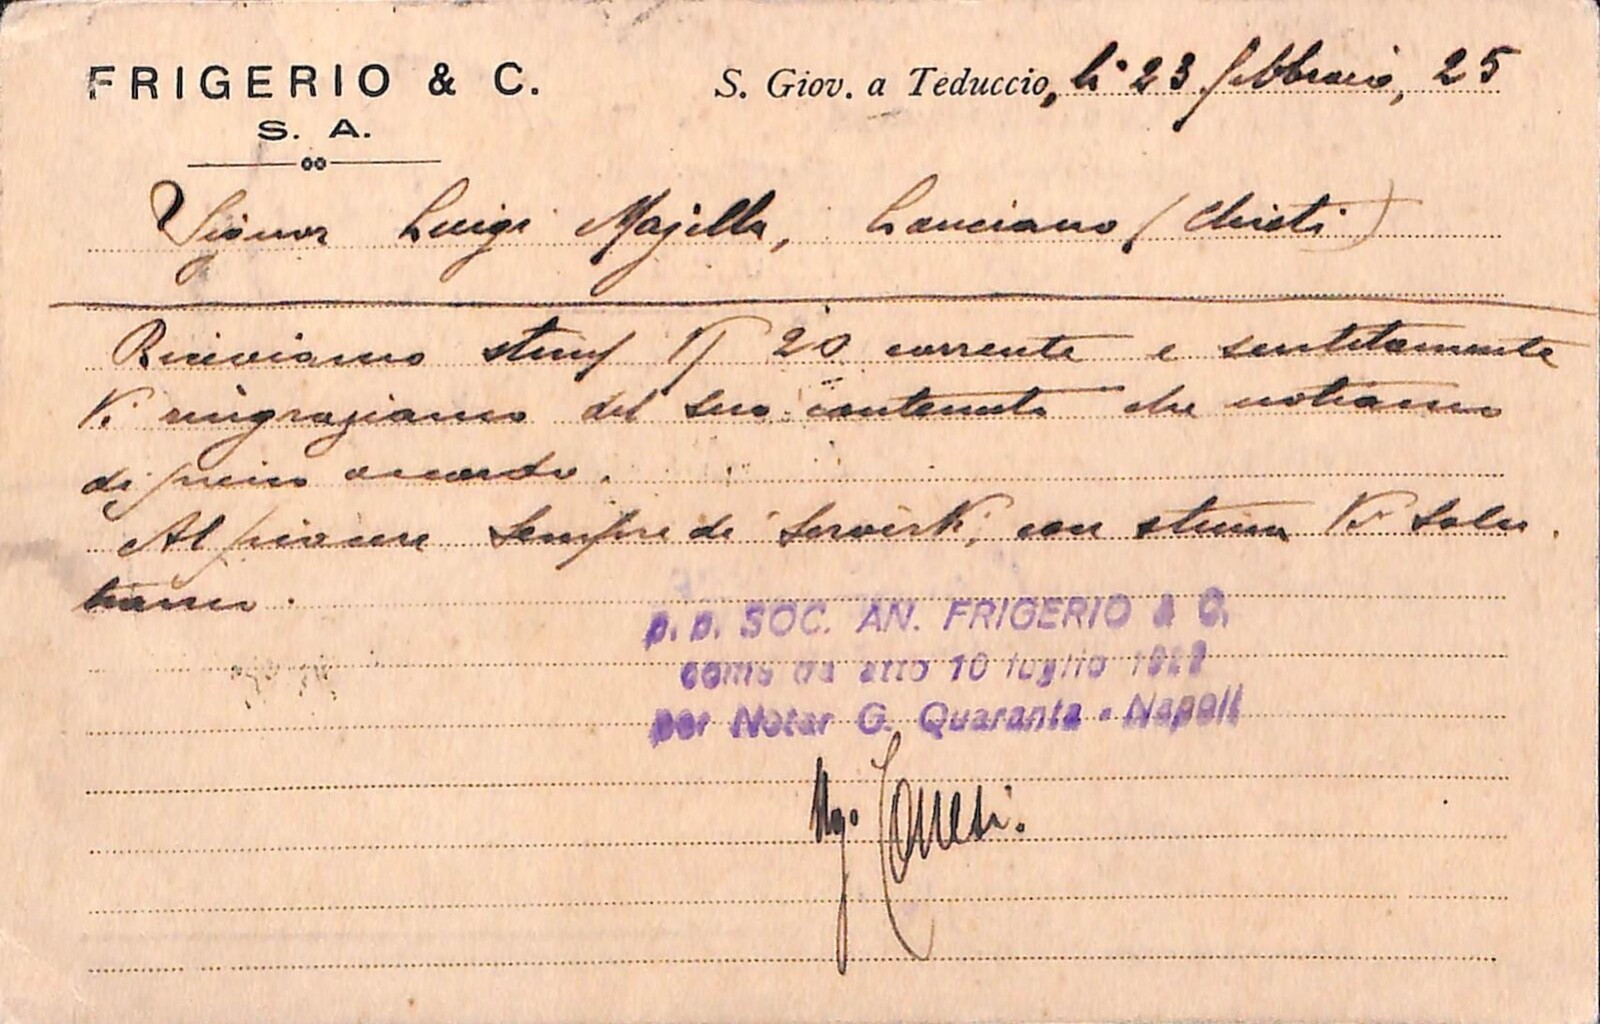 FRIGERIO & C.
S. A.
S. Giov. a Teduccio, li 23 febbraio, 25
Signor Luigi Majella, Lanciano (Chieti)
Riceviamo 20 corrente e sentitamente
Vi ringraziamo del suo contenuto che notiamo
di pieno accordo.
Al piacere sempre di servirVi, con stima Vi salu
tiamo.
p. p. SOC. AN. FRIGERIO & C.
come da atto 10 luglio
per Notar G. Quaranta - Napoli